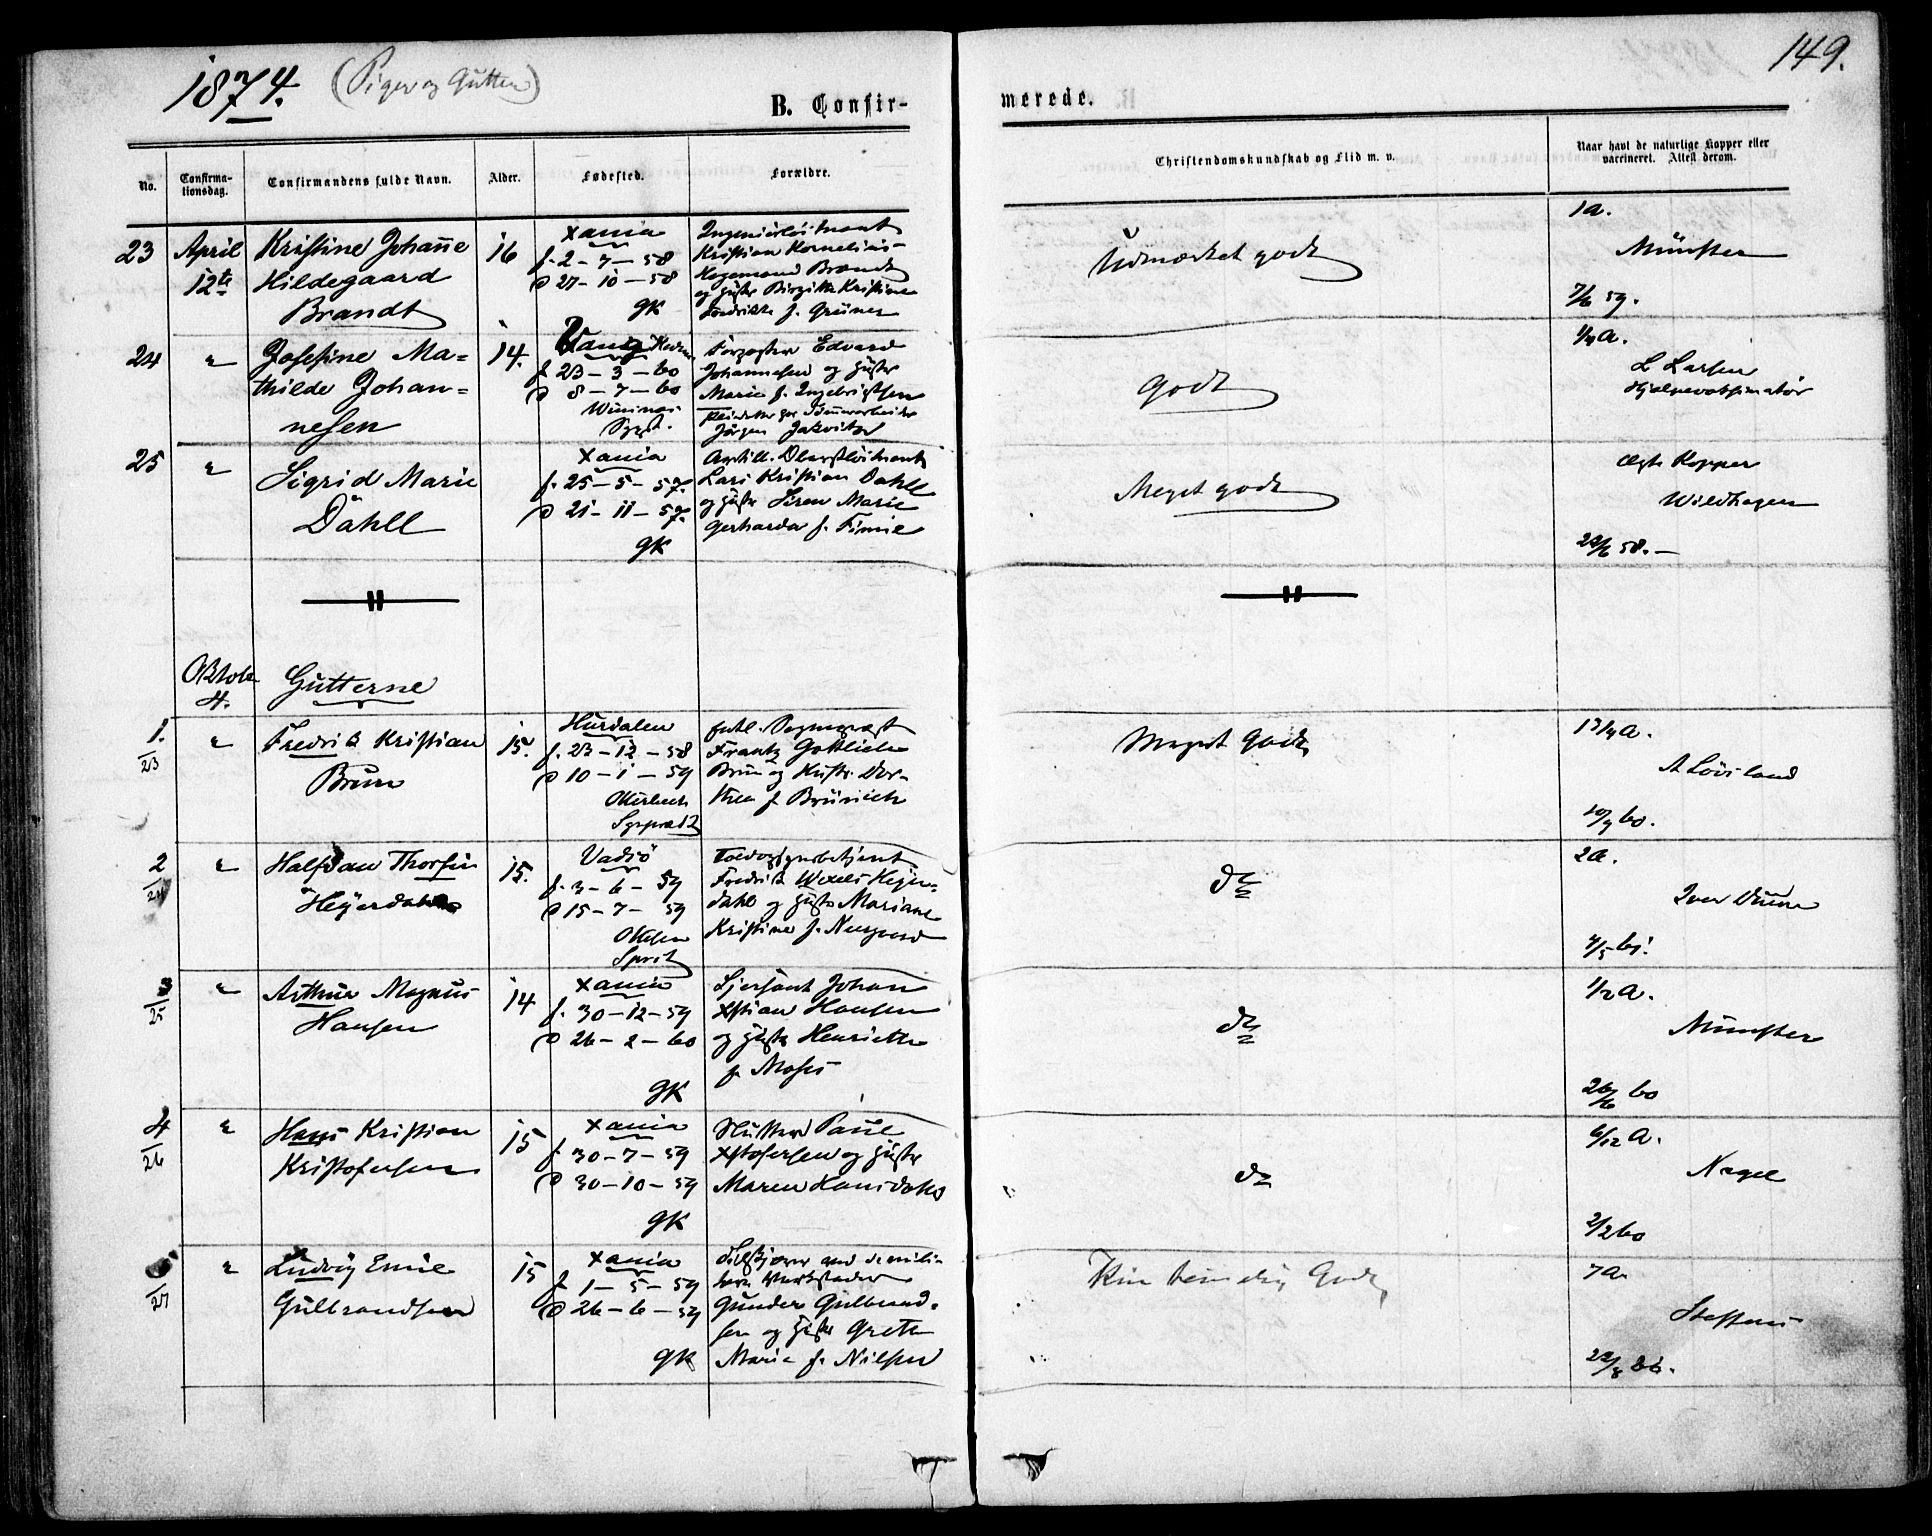 1874. (Piger og Gutter)
149.
B. Confir-
merede.
No.
Confirma-
tionsdag.
Confirmandens fulde Navn.
Alder.
Fødested.
Forældre.
Christendomskundskab og Flid m. v.
Naar havt de naturlige Kopper eller
vaccineret. Attest derom.
23 April
12te
Kristine Johanne
Hildegaard
Brandt
16
Xania
f. 2 - 7 - 58
d 27 - 10 - 58
GK
Ingeniørløitnant
Kristian Kornelius
Hegemand Brandt
og Hustr Birgitte Kristine
f. Grüner
Udmærket godt
1a.
Münster
7/6 59.
24 "
Josefine Ma-
thilde Johan-
nesen
14.
Vang
f 23 - 3 - 60
d 8 - 7 - 60
Edvard
Johannesen og Hustr
Marie f. Ingebrigtsen
Jörgen
Godt
1/4 A.
L Larsen
Hjælpevaksinatör
25 "
Sigrid Marie
Dahll
Xania
f. 25 - 5 - 57.
d 21 - 11 - 57.
GK
Artill. Oberstløitnant
Lars Kristian Dahll
og Hustr Siren Marie
Gerharda f.
Meget godt
ægte Kopper
Wildhagen
22/6 58. -
Oktober
4.
Gutterne
1.
23
"
Fredrik Kristian
Brun
15.
Hurdalen
f. 23 - 12 - 58
d 10 - 1 - 59
Otterbech
Sgpræst
fhl. Sognepræst
Frantz Gottlieb
Brun og Hustr. Dor-
thea f Brünich
Meget Godt
13/4 A.
A Lövsland
10/9 60.
2
24
"
Halfdan Thorfin
Heyerdahl
15.
Vadsö
f. 3 - 6 - 59
d 15 - 7 - 59
Sprst
Fredrik Wexels Heyer-
dahl og Hustr Mariane
Kristine f. Neergaard
do
2a.
Iver
4/5 61.
3
25
"
Arthur Magnus
Hansen
14
Xania
f. 30 - 12 - 59
d 26 - 2 - 60
GK
Sjersant Johan
Xstian Hansen
og Hustr Henriette
f. Moses
do
1/2 A.
Münster
26/6 60
4
26
"
Hans Kristian
Kristofersen
15
Xania
f. 30 - 7 - 59
d 30 - 10 - 59
GK
Paul
Xstofersen og Hustr
Maren Hansdatr
do
6/12 A.
Nagel
2/2 60
27
"
Ludvig Emil
Gulbrandsen
15
Xania
f 1 - 5 - 59
d 26 - 6 - 59
GK
ved de mili-
tære Værksteder
Gunder Gulbrand-
sen og Hustr Grethe
Marie f. Nilsen
Godt
7A.
Steffens
22/8